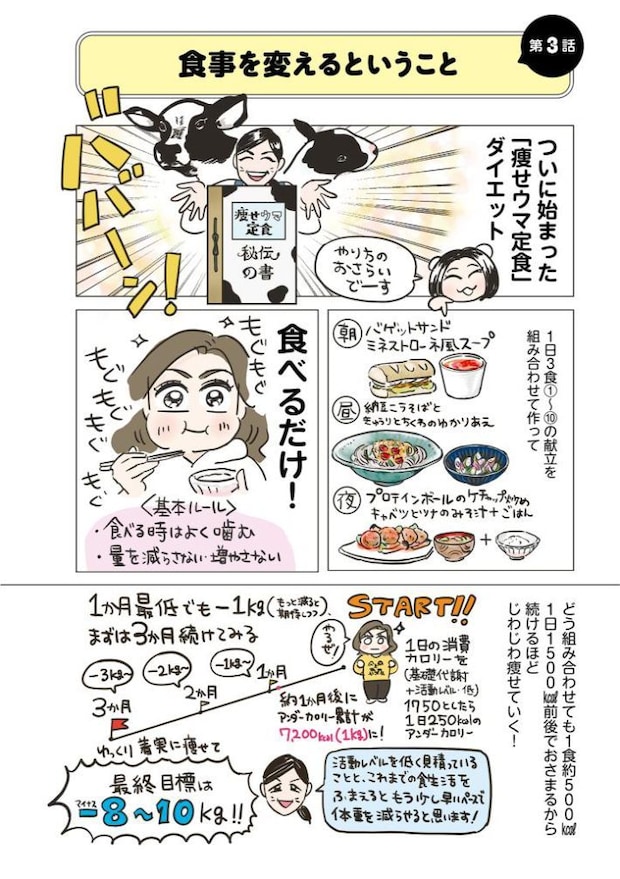 第3話
食事を変えるということ
ついに始まった
「痩せウマ定食」
ダイエット
ババーン!
痩せウマ
定食
秘伝
の書
やり方の
おさらい
でーす
1日3食①~⑩の献立を
組み合わせて作って
朝 バゲットサンド
ミネストローネ風スープ
昼 納豆ニラそばと
きゅうりとちくわのゆかりあえ
夜 プロテインボールのケチャップ炒め
キャベツとツナのみそ汁+ごはん
+
食べるだけ!
もぐもぐ
もぐもぐ
もぐもぐ
<基本ルール>
・食べる時はよく噛む
・量を減らさない・増やさない
どう組み合わせても1食約500kcal
1日1500kcal前後でおさまるから
続けるほど
じわじわ痩せていく!
START!!
1か月最低でも-1kg(もっと減ると期待しつつ)、
まずは3か月続けてみる
やるぞ!
1日の消費
カロリーを
(基礎代謝
+活動レベル・低)
1750としたら
1日250kcalの
アンダーカロリー
-1kg~
1か月
-2kg~
2か月
-3kg~
3か月
約1か月後に
アンダーカロリー累計が
7,200kcal(1kg)に!
ゆっくり着実に痩せて
最終目標は
マイナス
-8~10kg!!
活動レベルを低く見積っている
ことと、これまでの食生活を
ふまえるともう少し早いペースで
体重を減らせると思います!